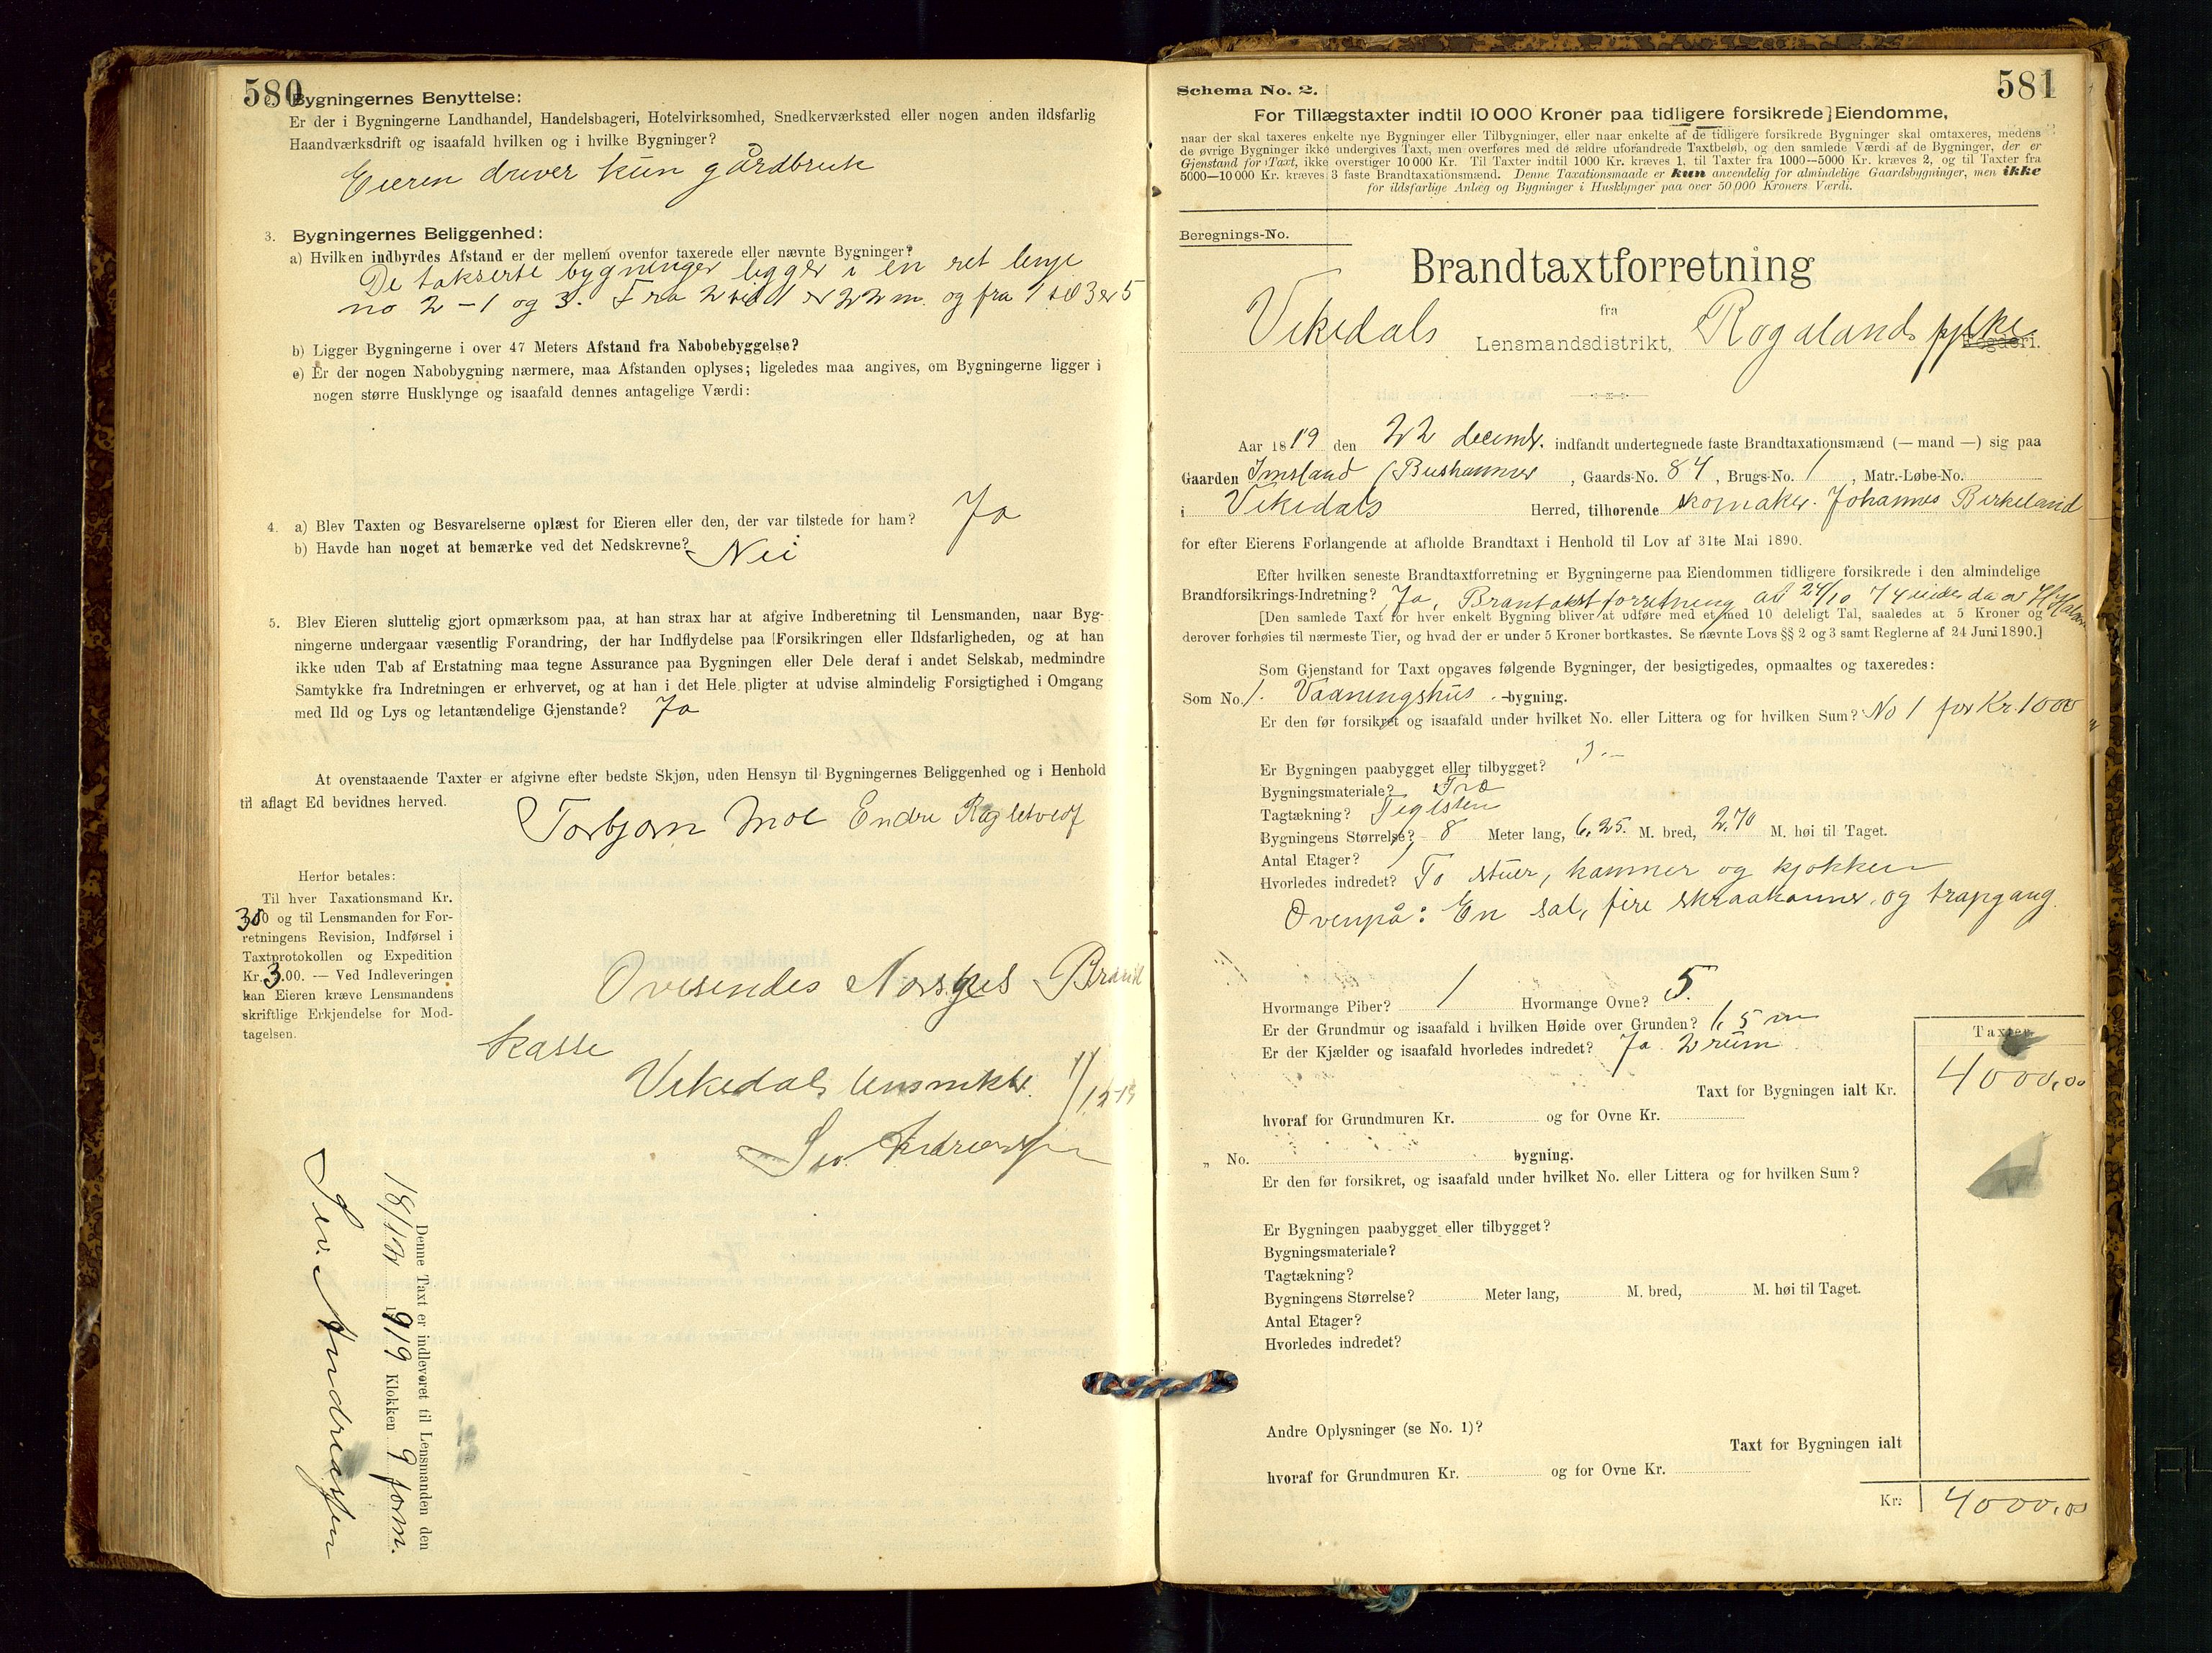 580
2. Bygningernes Benyttelse:
Er der i Bygningerne Landhandel, Handelsbageri, Hotelvirksomhed, Snedkerværksted eller nogen anden ildsfarlig
Haandværksdrift og isaafald hvilken og i hvilke Bygninger?
Eieren driver kun gårdbruk
3. Bygningernes Beliggenhed:
a) Hvilken indbyrdes Afstand er der mellem ovenfor taxerede eller nævnte Bygninger?
De takserte bygninger ligger i en ret linje
no 2 - 1 og 3. Fra 2 til 1 er 22 m. og fra 1 til 3 er 5
b) Ligger Bygningerne i over 47 Meters Afstand fra Nabobebyggelse?
c) Er der nogen Nabobygning nærmere, maa Afstanden oplyses; ligeledes maa angives, om Bygningerne ligger i
nogen større Husklynge og isaafald dennes antagelige Værdi:
4. a) Blev Taxten og Besvarelserne oplæst for Eieren eller den, der var tilstede for ham? Ja
b) Havde han noget at bemærke ved det Nedskrevne? Nei
5. Blev Eieren sluttelig gjort opmærksom paa, at han strax har at afgive Indberetning til Lensmanden, naar Byg-
ningerne undergaar væsentlig Forandring, der har Indflydelse paa Forsikringen eller Ildsfarligheden, og at han
ikke uden Tab af Erstatning maa tegne Assurance paa Bygningen eller Dele deraf i andet Selskab, medmindre
Samtykke fra Indretningen er erhvervet, og at han i det Hele pligter at udvise almindelig Forsigtighed i Omgang
med Ild og Lys og letantændelige Gjenstande? Ja
At ovenstaaende Taxter er afgivne efter bedste Skjøn, uden Hensyn til Bygningernes Beliggenhed og i Henhold
til aflagt Ed bevidnes herved.
Torbjørn Moe Endre
Herfor betales:
Til hver Taxationsmand Kr.
3 00 og til Lensmanden for For-
retningens Revision, Indførsel i
Taxtprotokollen og Expedition
Kr. 3.00. — Ved Indleveringen
kan Eieren kræve Lensmandens
skriftlige Erkjendelse for Mod-
tagelsen.
Oversendes Norges Brand
kasse
Vikedals lensmktr.
Sev. Andreassen
Denne Taxt er indleveret til Lensmanden den
18/12 1919 Klokken 9 form.
Sev. Andreassen
581
Schema No. 2.
For Tillægstaxter indtil 10 000 Kroner paa tidligere forsikrede Eiendomme,
naar der skal taxeres enkelte nye Bygninger eller Tilbygninger, eller naar enkelte af de tidligere forsikrede Bygninger skal omtaxeres, medens
de øvrige Bygninger ikke undergives Taxt, men overføres med de ældre uforandrede Taxtbeløb, og den samlede Værdi af de Bygninger, der er
Gjenstand for Taxt, ikke overstiger 10 000 Kr. Til Taxter indtil 1000 Kr. kræves 1, til Taxter fra 1000—5000 Kr. kræves 2, og til Taxter fra
5000—10 000 Kr. kræves 3 faste Brandtaxationsmænd. Denne Taxationsmaade er kun anvendelig for almindelige Gaardsbygninger, men ikke
for ildsfarlige Anlæg og Bygninger i Husklynger paa over 50 000 Kroners Værdi.
Beregnings-No.
Brandtaxtforretning
fra
Vikedals Lensmandsdistrikt, Rogalands fylke Fogderi.
Aar 1819 den 22 decembr. indfandt undertegnede faste Brandtaxationsmænd (— mand —) sig paa
Gaarden Imsland (Bushammer , Gaards-No. 84, Brugs-No. 1, Matr.-Løbe-No.
i Vikedals Herred, tilhørende skomaker Johannes Birkeland
for efter Eierens Forlangende at afholde Brandtaxt i Henhold til Lov af 31te Mai 1890.
Efter hvilken seneste Brandtaxtforretning er Bygningerne paa Eiendommen tidligere forsikrede i den almindelige
Brandforsikrings-Indretning? Ja, Brantakstforretning av 24/10 74
[Den samlede Taxt for hver enkelt Bygning bliver at udføre med et med 10 deleligt Tal, saaledes at 5 Kroner og
derover forhøies til nærmeste Tier, og hvad der er under 5 Kroner bortkastes. Se nævnte Lovs §§ 2 og 3 samt Reglerne af 24 Juni 1890.]
Som Gjenstand for Taxt opgaves følgende Bygninger, der besigtigedes, opmaaltes og taxeredes:
Som No. 1. Vaaningshus -bygning.
Er den før forsikret og isaafald under hvilket No. eller Littera og for hvilken Sum? No 1 for Kr. 1000
Er Bygningen paabygget eller tilbygget?
Bygningsmateriale? Træ
Tagtækning? Teglsten
Bygningens Størrelse? 8 Meter lang, 6,25. M. bred, 2,70 M. høi til Taget.
Antal Etager? 1
Hvorledes indredet? To stuer, kammer og kjøkken
Ovenpå: En sal, fire skraakammr. og trapgang
Hvormange Piber? 1 Hvormange Ovne? 5.
Er der Grundmur og isaafald i hvilken Høide over Grunden? 1,5 m
Er der Kjælder og isaafald hvorledes indredet? Ja 2 rum
Taxter
Taxt for Bygningen ialt Kr. 4000,00
hvoraf for Grundmuren Kr. og for Ovne Kr.
„ No. bygning.
Er den før forsikret, og isaafald under hvilket No. eller Littera og for hvilken Sum?
Er Bygningen paabygget eller tilbygget?
Bygningsmateriale?
Tagtækning?
Bygningens Størrelse? Meter lang, M. bred, M. høi til Taget.
Antal Etager?
Hvorledes indredet?
Andre Oplysninger (se No. 1)?
Taxt for Bygningen ialt
hvoraf for Grundmuren Kr. og for Ovne Kr.
Kr. 4000,00